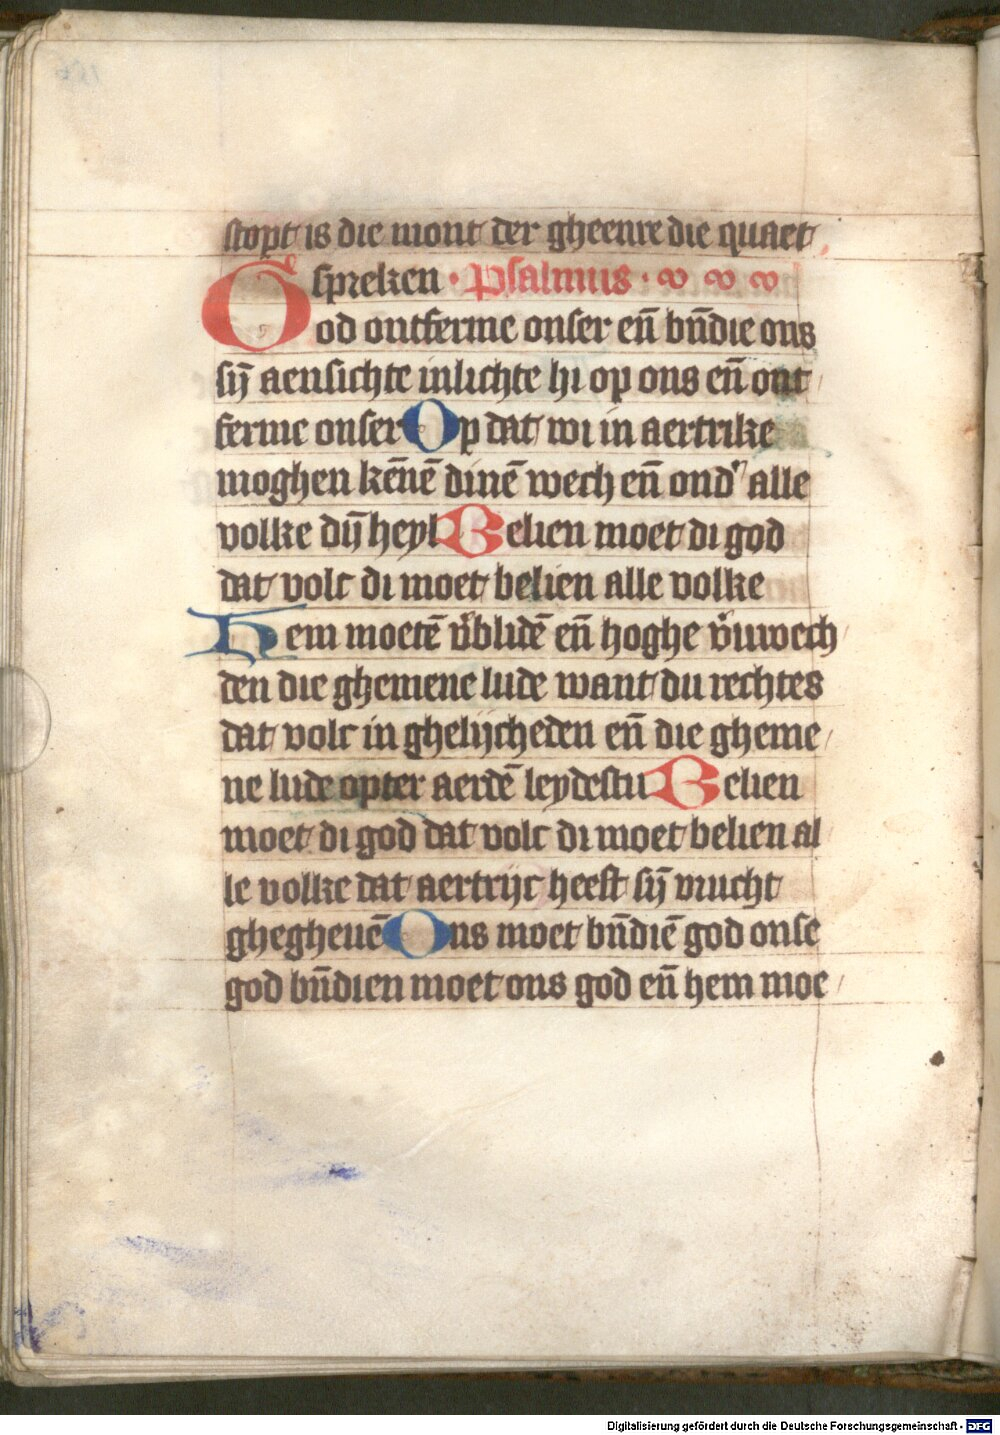 stopt is die mont der gheenre die quaet
spreken · Psalmus ·
God ontferme onser en̄ bn̄die ons
sij̄ aensichte inlichte hi op ons en̄ ont
ferme onser Op dat wi in aertrike
moghen kēnē dinē wech en̄ ond' alle
volke dij̄ heyl Belien moet di god
dat volc di moet belien alle volke
Hem moetē v'blidē en̄ hoghe v'uwech
den die ghemene lude want du rechtes
dat volc in ghelijcheden en̄ die gheme
ne lude opter aerdē leydestu Belien
moet di god dat volc di moet belien al
le volke dat aertrijc heeft sij̄ vrucht
ghegheuē Ons moet bn̄diē god onse
god bn̄dien moet ons god en̄ hem moe
Digitalisierung gefördert durch die Deutsche Forschungsgemeinschaft - DFG